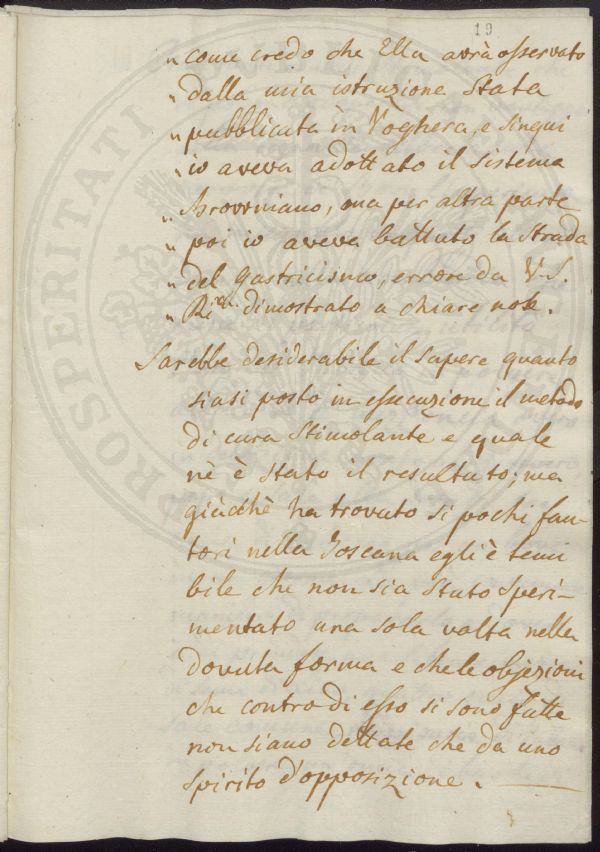 19
" come credo che Ella avrà osservato
" dalla mia istruzione stata
" pubblicata in Voghera, e sinqui
" io aveva adottato il sistema
" Browniano, ma per altra parte
" poi io aveva battuto la strada
" del gastricismo, errore da V. S.
" dimostrato a chiare note.
Sarebbe desiderabile il sapere quanto
siasi posto in essecuzione il metodo
di cura stimolante e quale
nè è stato il resultato; ma
giàchè ha trovato si pochi fau-
tori nella Toscana egli è temi
bile che non sia stato speri-
mentato una sola volta nella
dovuta forma e che le objezioni
che contro di esso si sono fatte
non siano dettate che da uno
spirito d'opposizione.
PROSPERITATI PUBLICAE